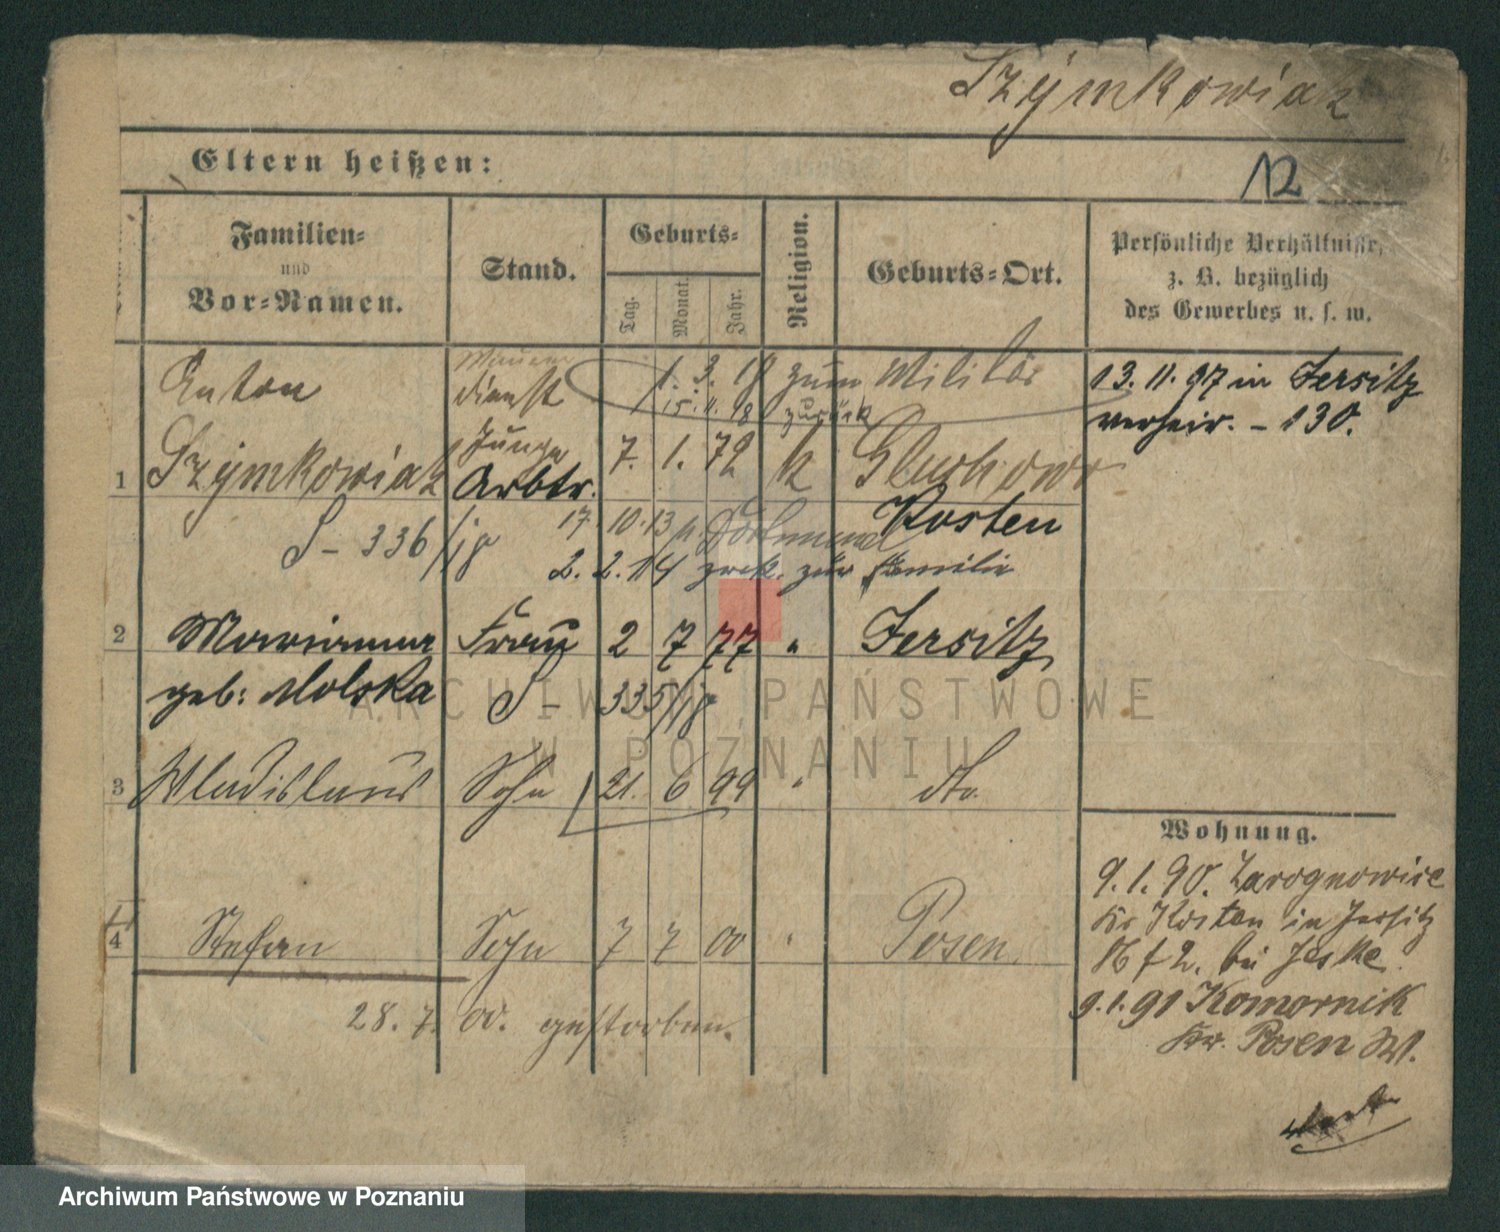 Szymkowiak
Eltern heißen:
12
Familien-
und
Vor-Namen.
Stand.
Geburts-
Tag.
Monat.
Jahr.
Religion.
Geburts-Ort.
Persönliche Verhältnisse,
z. B. bezüglich
des Gewerbes u. s. w.
Anton
dienst
1. 3. 18 zum Militär
15. 11. 18 zurück
13. 11. 97 in Jersitz
verheir. - 130.
1 Szymkowiak
Junge
Arbtr.
7. 1. 72 k Gluchowo
Kosten
S - 336/18
17. 10. 13 n Dortmund
2. 2. 14 zrck. zur Familie
2 Marianna Frau 2 7 77 " Jersitz
geb: Molska S - 335/18
3 Wladislaus Sohn 21. 6 99 " dto.
4 Stefan Sohn 7 7 00 " Posen.
28. 7. 00. gestorben.
Wohnung.
9. 1. 90.
Kr Kosten in Jersitz
bei Jeske.
9. 1. 91 Komornik
Kr. Posen W.
ARCHIWUM PAŃSTWOWE
W POZNANIU
Archiwum Państwowe w Poznaniu